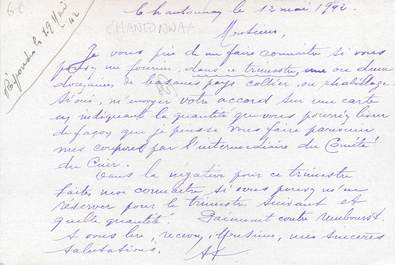 Chantonnay le 12 mai 1942.
CHANTONNAY
Répondu le 29 Mai 42
Messieurs,
Je vous prie de me faire connaître si vous
pouvez me fournir, dans ce trimestre, une ou deux
douzaines de basanes pays collier ou habillage
Si oui, m'envoyer votre accord sur une carte
en indiquant la quantité que vous pourriez livrer
de façon que je puisse vous faire parvenir
mes coupures par l'intermédiaire du Comité
du Cuir.
Dans la négative pour ce trimestre
faites moi connaître si vous pouvez m'en
réserver pour le trimestre suivant et
quelle quantité. Paiement contre rembourst.
A vous lire, recevez, Messieurs, mes sincères
salutations.